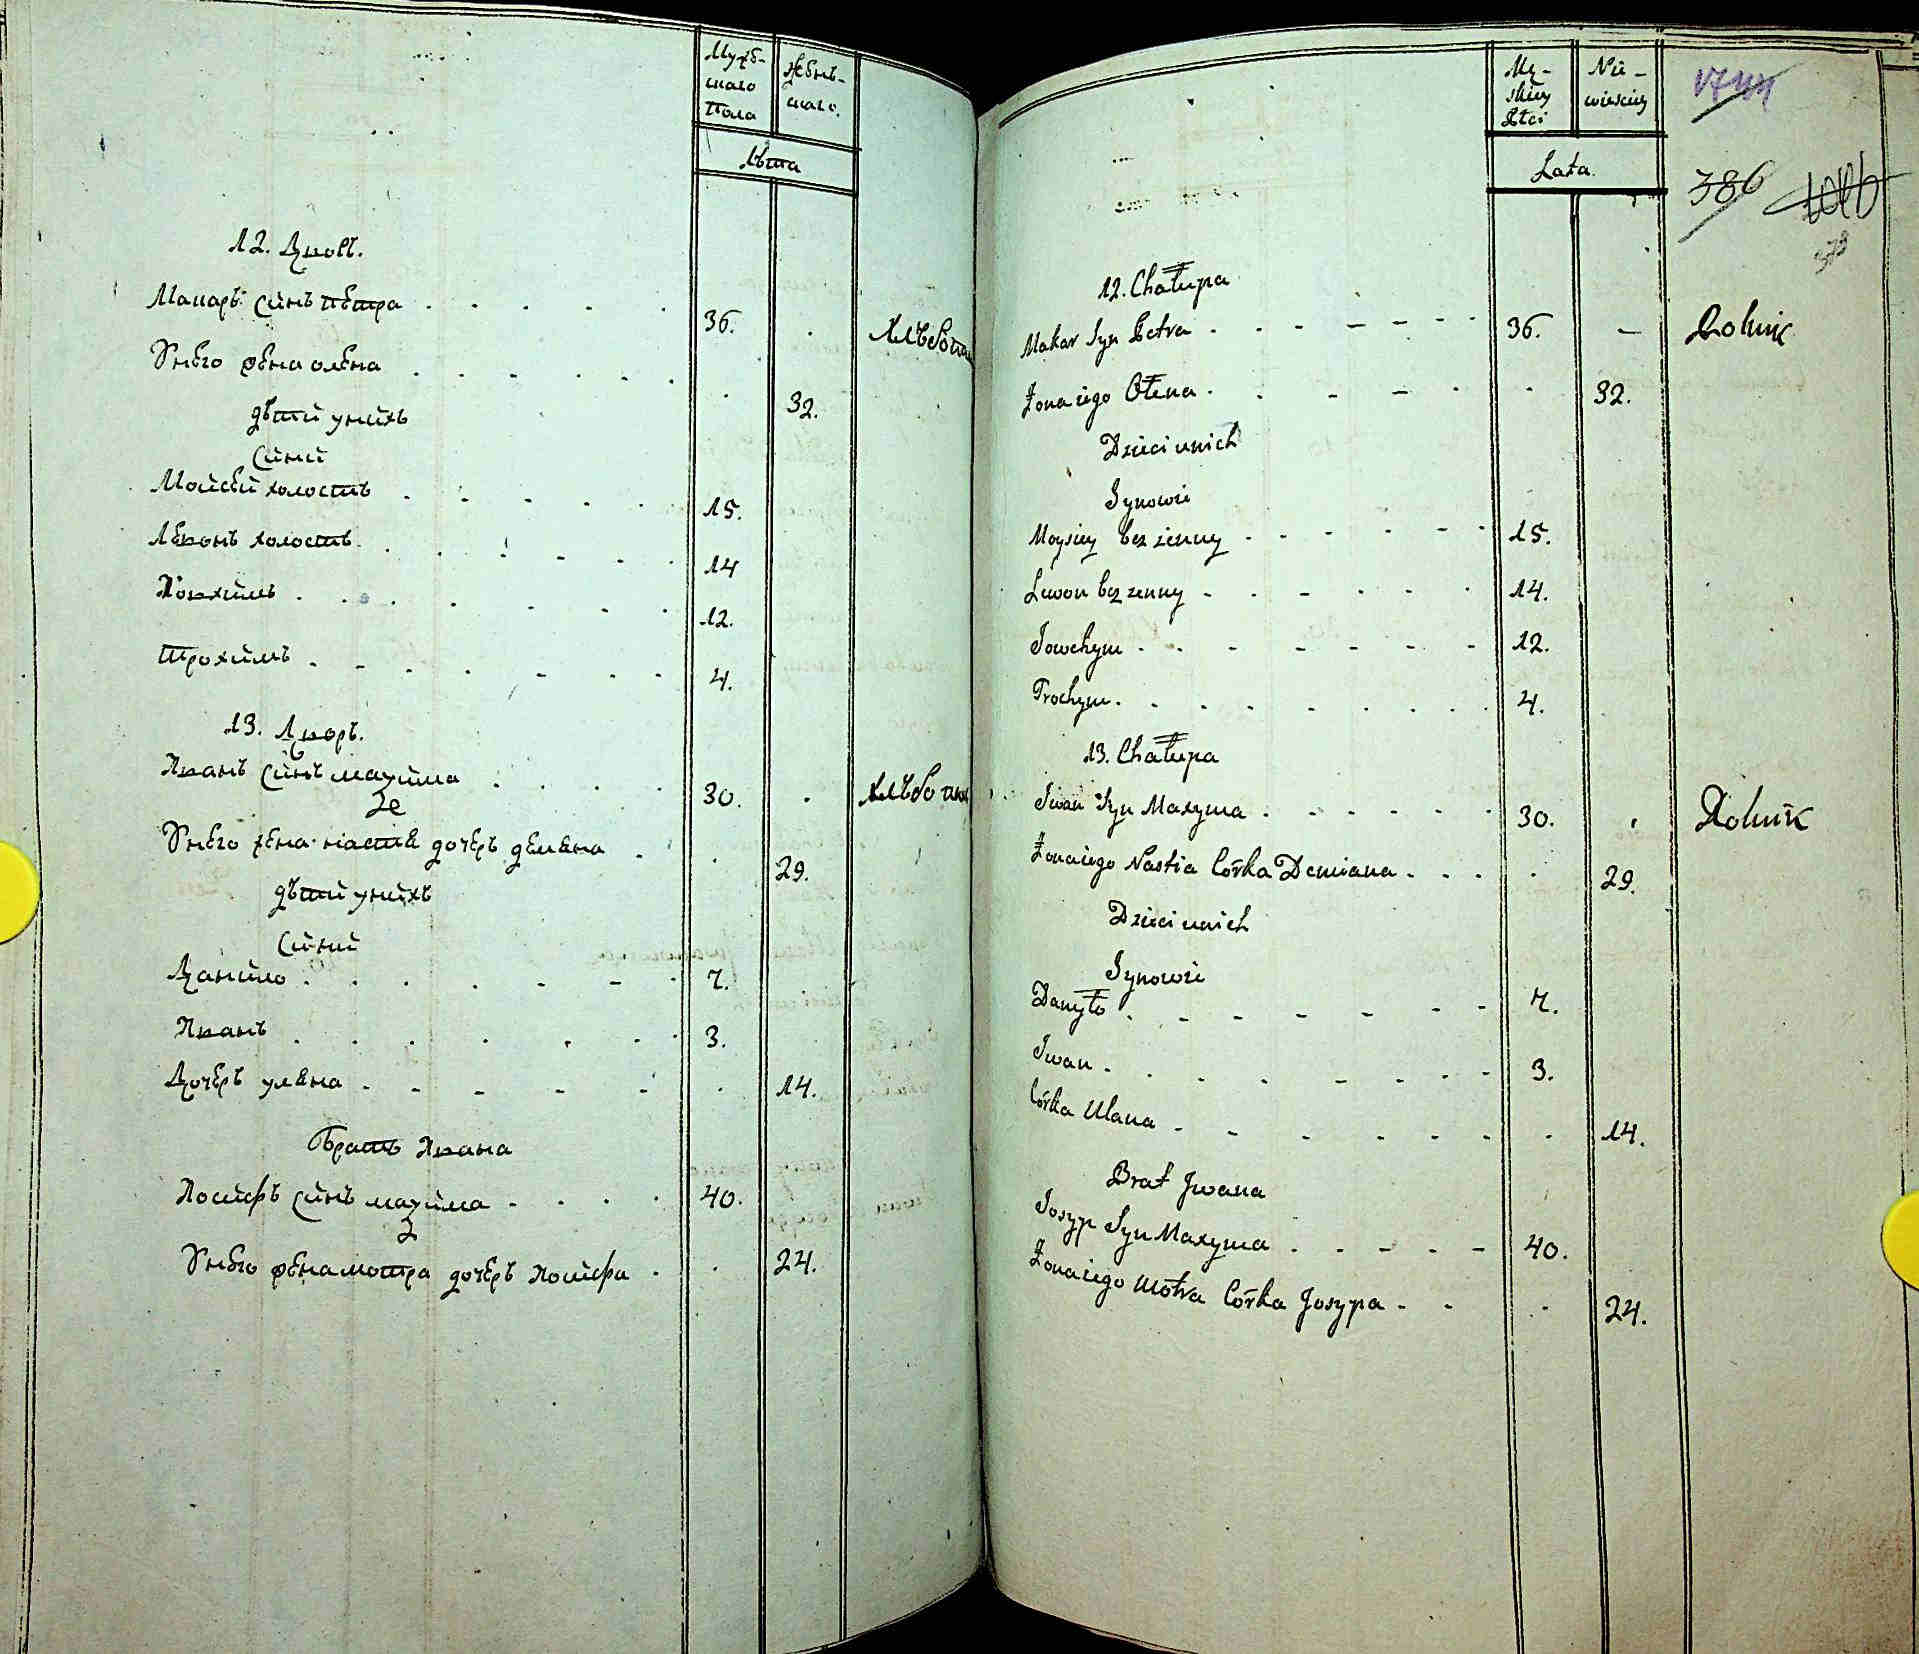 Мужє-
скаго
Пола
Женъ-
скаго.
Лѣта
12. Дворъ.
Макаръ Синъ пєтра 36. Хлѣбопа
Унєго жєна олєна 32.
дѣтий унихъ
Сини
Мойсєй холостъ 15.
Лєвонъ холостъ 14
Иовхимъ 12.
Трохимъ 4.
13. Дворъ.
Иванъ Синъ махима 30. Хлѣбопах
2е
Унєго жєна настя дочєръ дємяна 29.
дѣтий унихъ
Сини
Данило 7.
Иванъ 3.
Дочєръ уляна 14.
Братъ Ивана
Иосифъ Синъ махима 40.
2
Унєго жєна мотра дочєръ Иосифа 24.
Mę-
skiey
Płci
Nie-
wieściey
Lata.
386
12. Chałupa
Makar Syn Petra 36. Rolnik
Żona iego Ołena 32.
Dzieci unich
Synowie
Moysiey bezżenny 15.
Lewon bezzenny 14.
Jowchym 12.
Trochym 4.
13. Chałupa
Iwan Syn Maxyma 30. Rolnik
Żona iego Nastia Córka Demiana 29.
Dzieci unich
Synowie
Danyło 7.
Iwan 3.
Córka Ulana 14.
Brat Jwana
Josyp Syn Maxyma 40.
Żona iego Motra Córka Josypa 24.